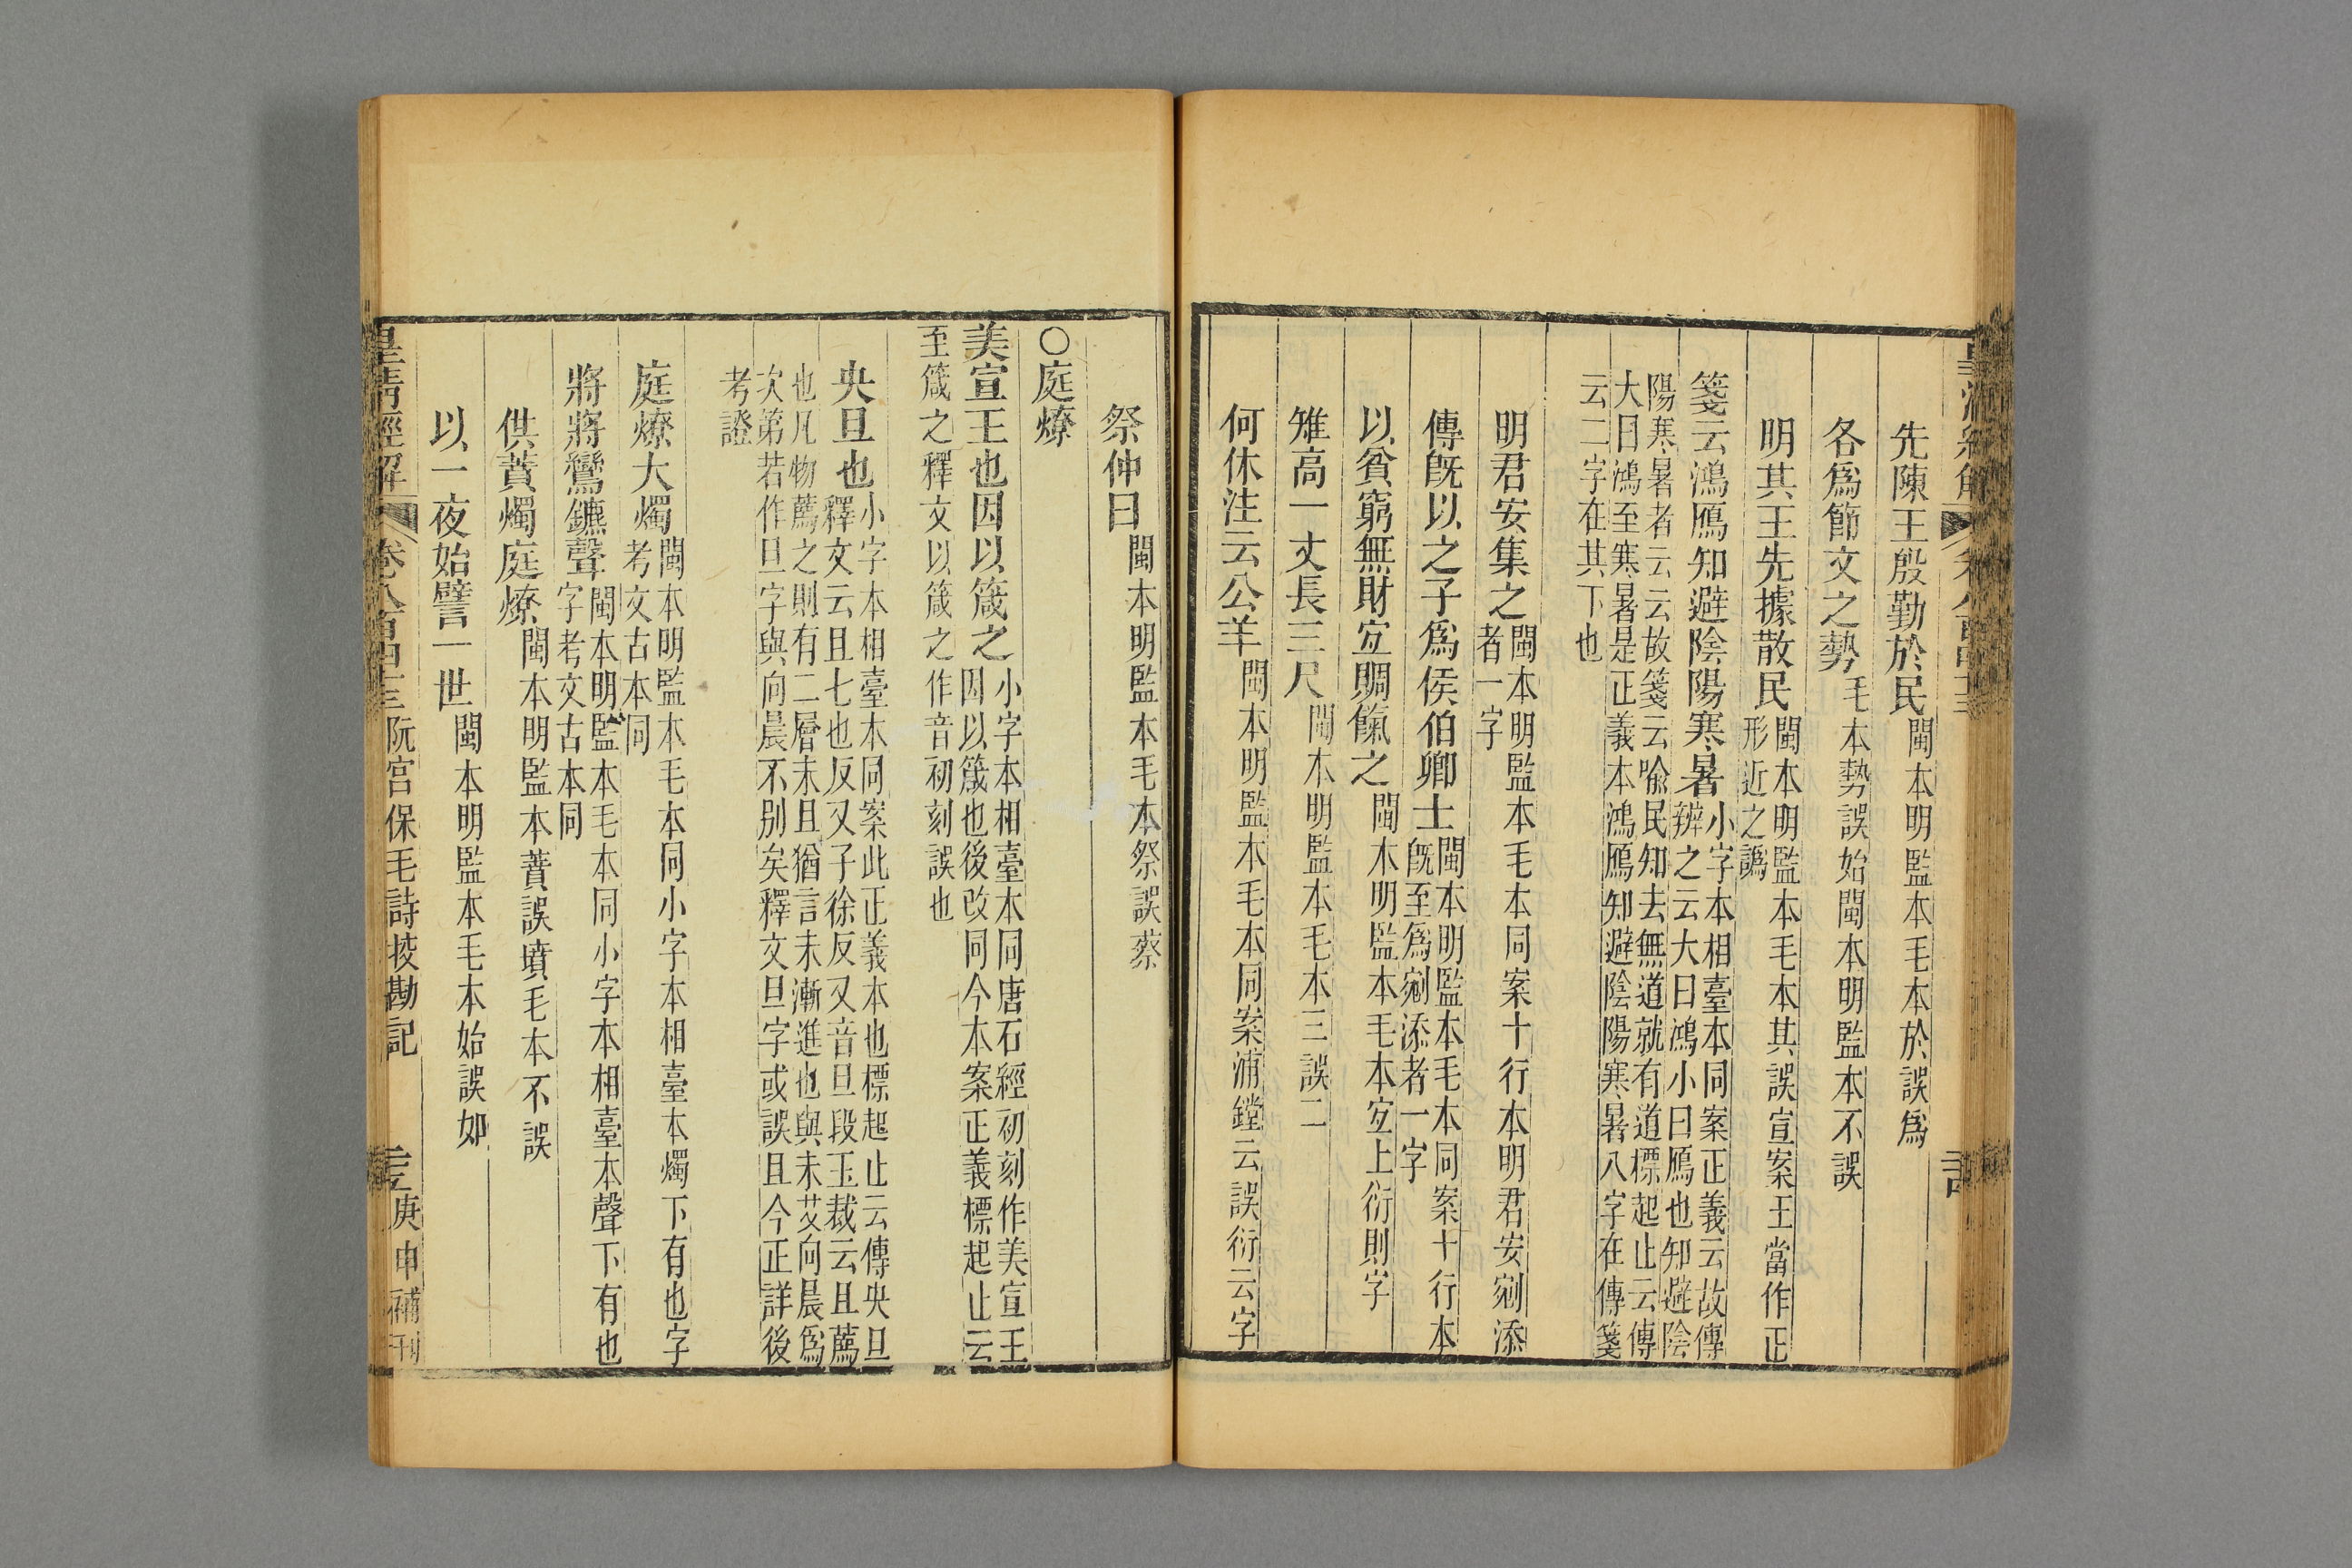 先陳王殷勤於民閩本明監本毛本於誤爲
各爲節文之勢毛本勢誤始閩本明監本不誤
明其王先據散民閩本明監本毛本其誤宣案王當作正形近之譌
箋云鴻鴈知避陰陽寒暑小字本相臺本同案正義云故傳辨之云大曰鴻小曰鴈也知避陰
陽寒暑者云云故箋云喻民知去無道就有道標起止云傳大曰鴻至寒暑是正義本鴻鴈知避陰陽寒暑八字在傳箋
云二字在其下也
明君安集之閩本明監本毛本同案十行本明君安剜添者一字
傳旣以之子爲侯伯卿士閩本明監本毛本同案十行本旣至爲剜添者一字
以貧窮無財宐賙餼之閩本明監本毛本宐上衍則字
雉高一丈長三尺閩本明監本毛本三誤二
何休注云公羊閩本明監本毛本同案浦鏜云誤衍云字
祭仲曰閩本明監本毛本祭誤蔡
○庭燎
美宣王也因以箴之小字本相臺本同唐石經初刻作美宣王因以箴也後改同今本案正義標起止云
至箴之釋文以箴之作音初刻誤也
央旦也小字本相臺本同案此正義本也標起止云傳央旦釋文云且七也反又子徐反又音旦段玉裁云且薦
也凡物薦之則有二層未且猶言未漸進也與未艾向晨爲次第若作旦字與向晨不别矣釋文旦字或誤且今正詳後
考證
庭燎大燭閩本明監本毛本同小字本相臺本燭下有也字考文古本同
將將鸞鑣聲閩本明監本毛本同小字本相臺本聲下有也字考文古本同
供蕡燭庭燎閩本明監本蕡誤墳毛本不誤
以一夜始譬一世閩本明監本毛本始誤如
皇清經解 卷八百四十三 阮宮保毛詩挍勘記 庚申補刊